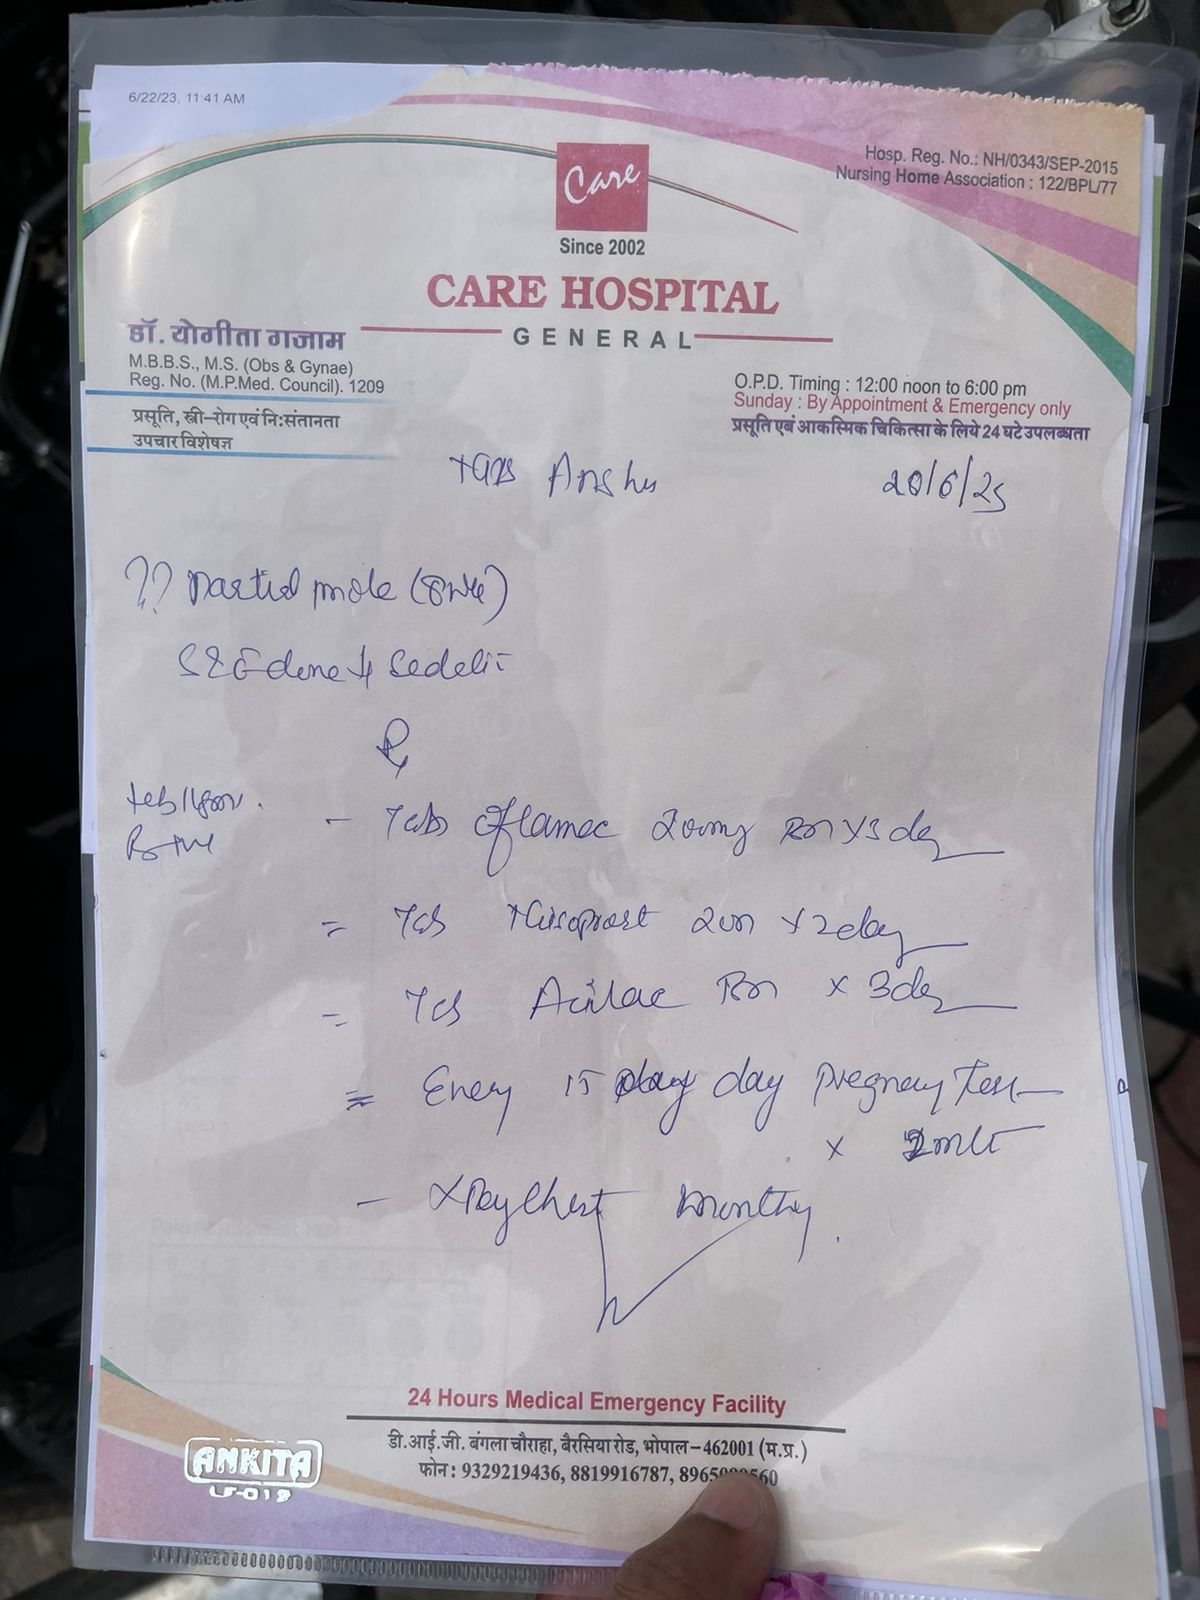 6/22/23, 11:41 AM
Hosp. Reg. No.: NH/0343/SEP-2015
Nursing Home Association : 122/BPL/77
Care
Since 2002
CARE HOSPITAL
GENERAL
डॉ. योगीता गजाम
M.B.B.S., M.S. (Obs & Gynae)
Reg. No. (M.P.Med. Council). 1209
प्रसूति, स्त्री-रोग एवं नि:संतानता
उपचार विशेषज्ञ
O.P.D. Timing : 12:00 noon to 6:00 pm
Sunday : By Appointment & Emergency only
प्रसूति एवं आकस्मिक चिकित्सा के लिये 24 घटे उपलब्धता
Anshu
?? Partial mole
done
Tab 200mg x 3 day
= Tab Misoprost x 2 day
= Tab x 3 day
= Every 15 day pregnancy test
x
- X Ray Chest Monthly
24 Hours Medical Emergency Facility
डी.आई.जी. बंगला चौराहा, बैरसिया रोड, भोपाल-462001 (म.प्र.)
फोन : 9329219436, 8819916787,
ANKITA
LF-019